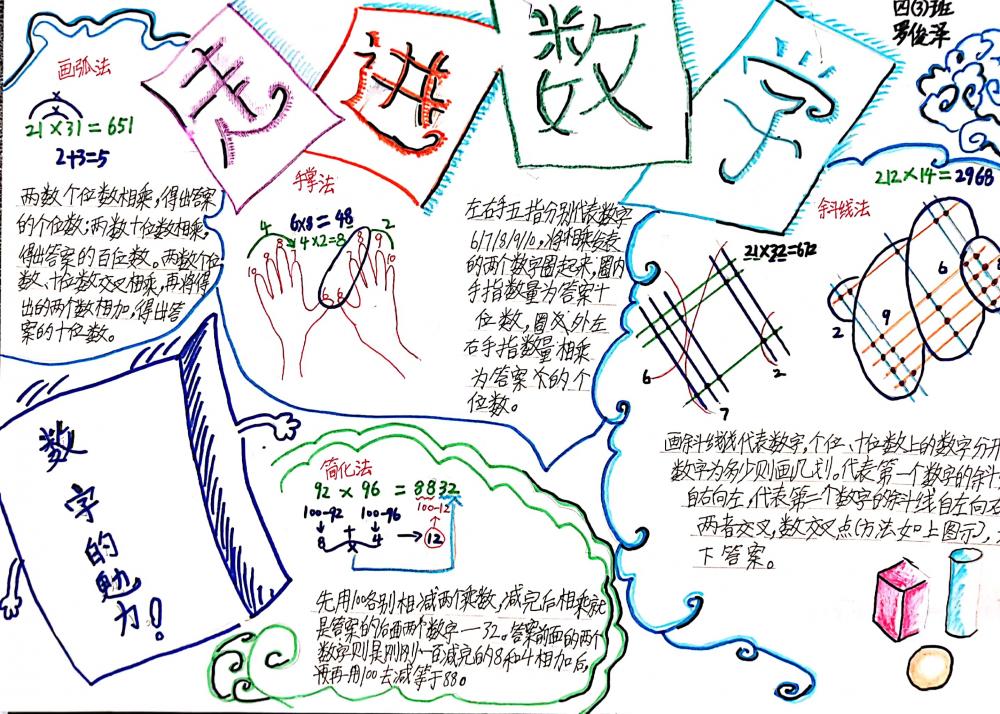 走进数学
四(3)班
罗俊泽
画弧法
21×31=651
2+3=5
两数个位数相乘,得出答案
的个位数;两数十位数相乘,
得出答案的百位数。两数个位
数、十位数交叉相乘,再将得
出的两个数相加,得出答
案的十位数。
手掌法
6×8=48
4×2=8
4
2
10
9
8
7
6
8
9
10
左右手五指分别代表数字
6/7/8/9/10,将相乘
的两个数字圈起来,圈内
手指数量为答案十
位数,圈外左
右手指数量相乘
为答案的个
位数。
21×32=672
6
7
2
212×14=2968
斜线法
2
9
6
8
画斜线代表数字,个位、十位数上的数字分开
数字为多少则画几划。代表第一个数字的斜
自右向左,代表第二个数字的斜线自左向右
两者交叉,数交叉点(方法如上图示),
下答案。
数字的魅力!
简化法
92×96=8832
100-92
100-96
100-12
8
+
×
4
12
先用100各别相减两个乘数,减完后相乘就
是答案的后面两个数字—32。答案前面的两个
数字则是刚刚一百减完的8和4相加后,
再用100去减等于88。